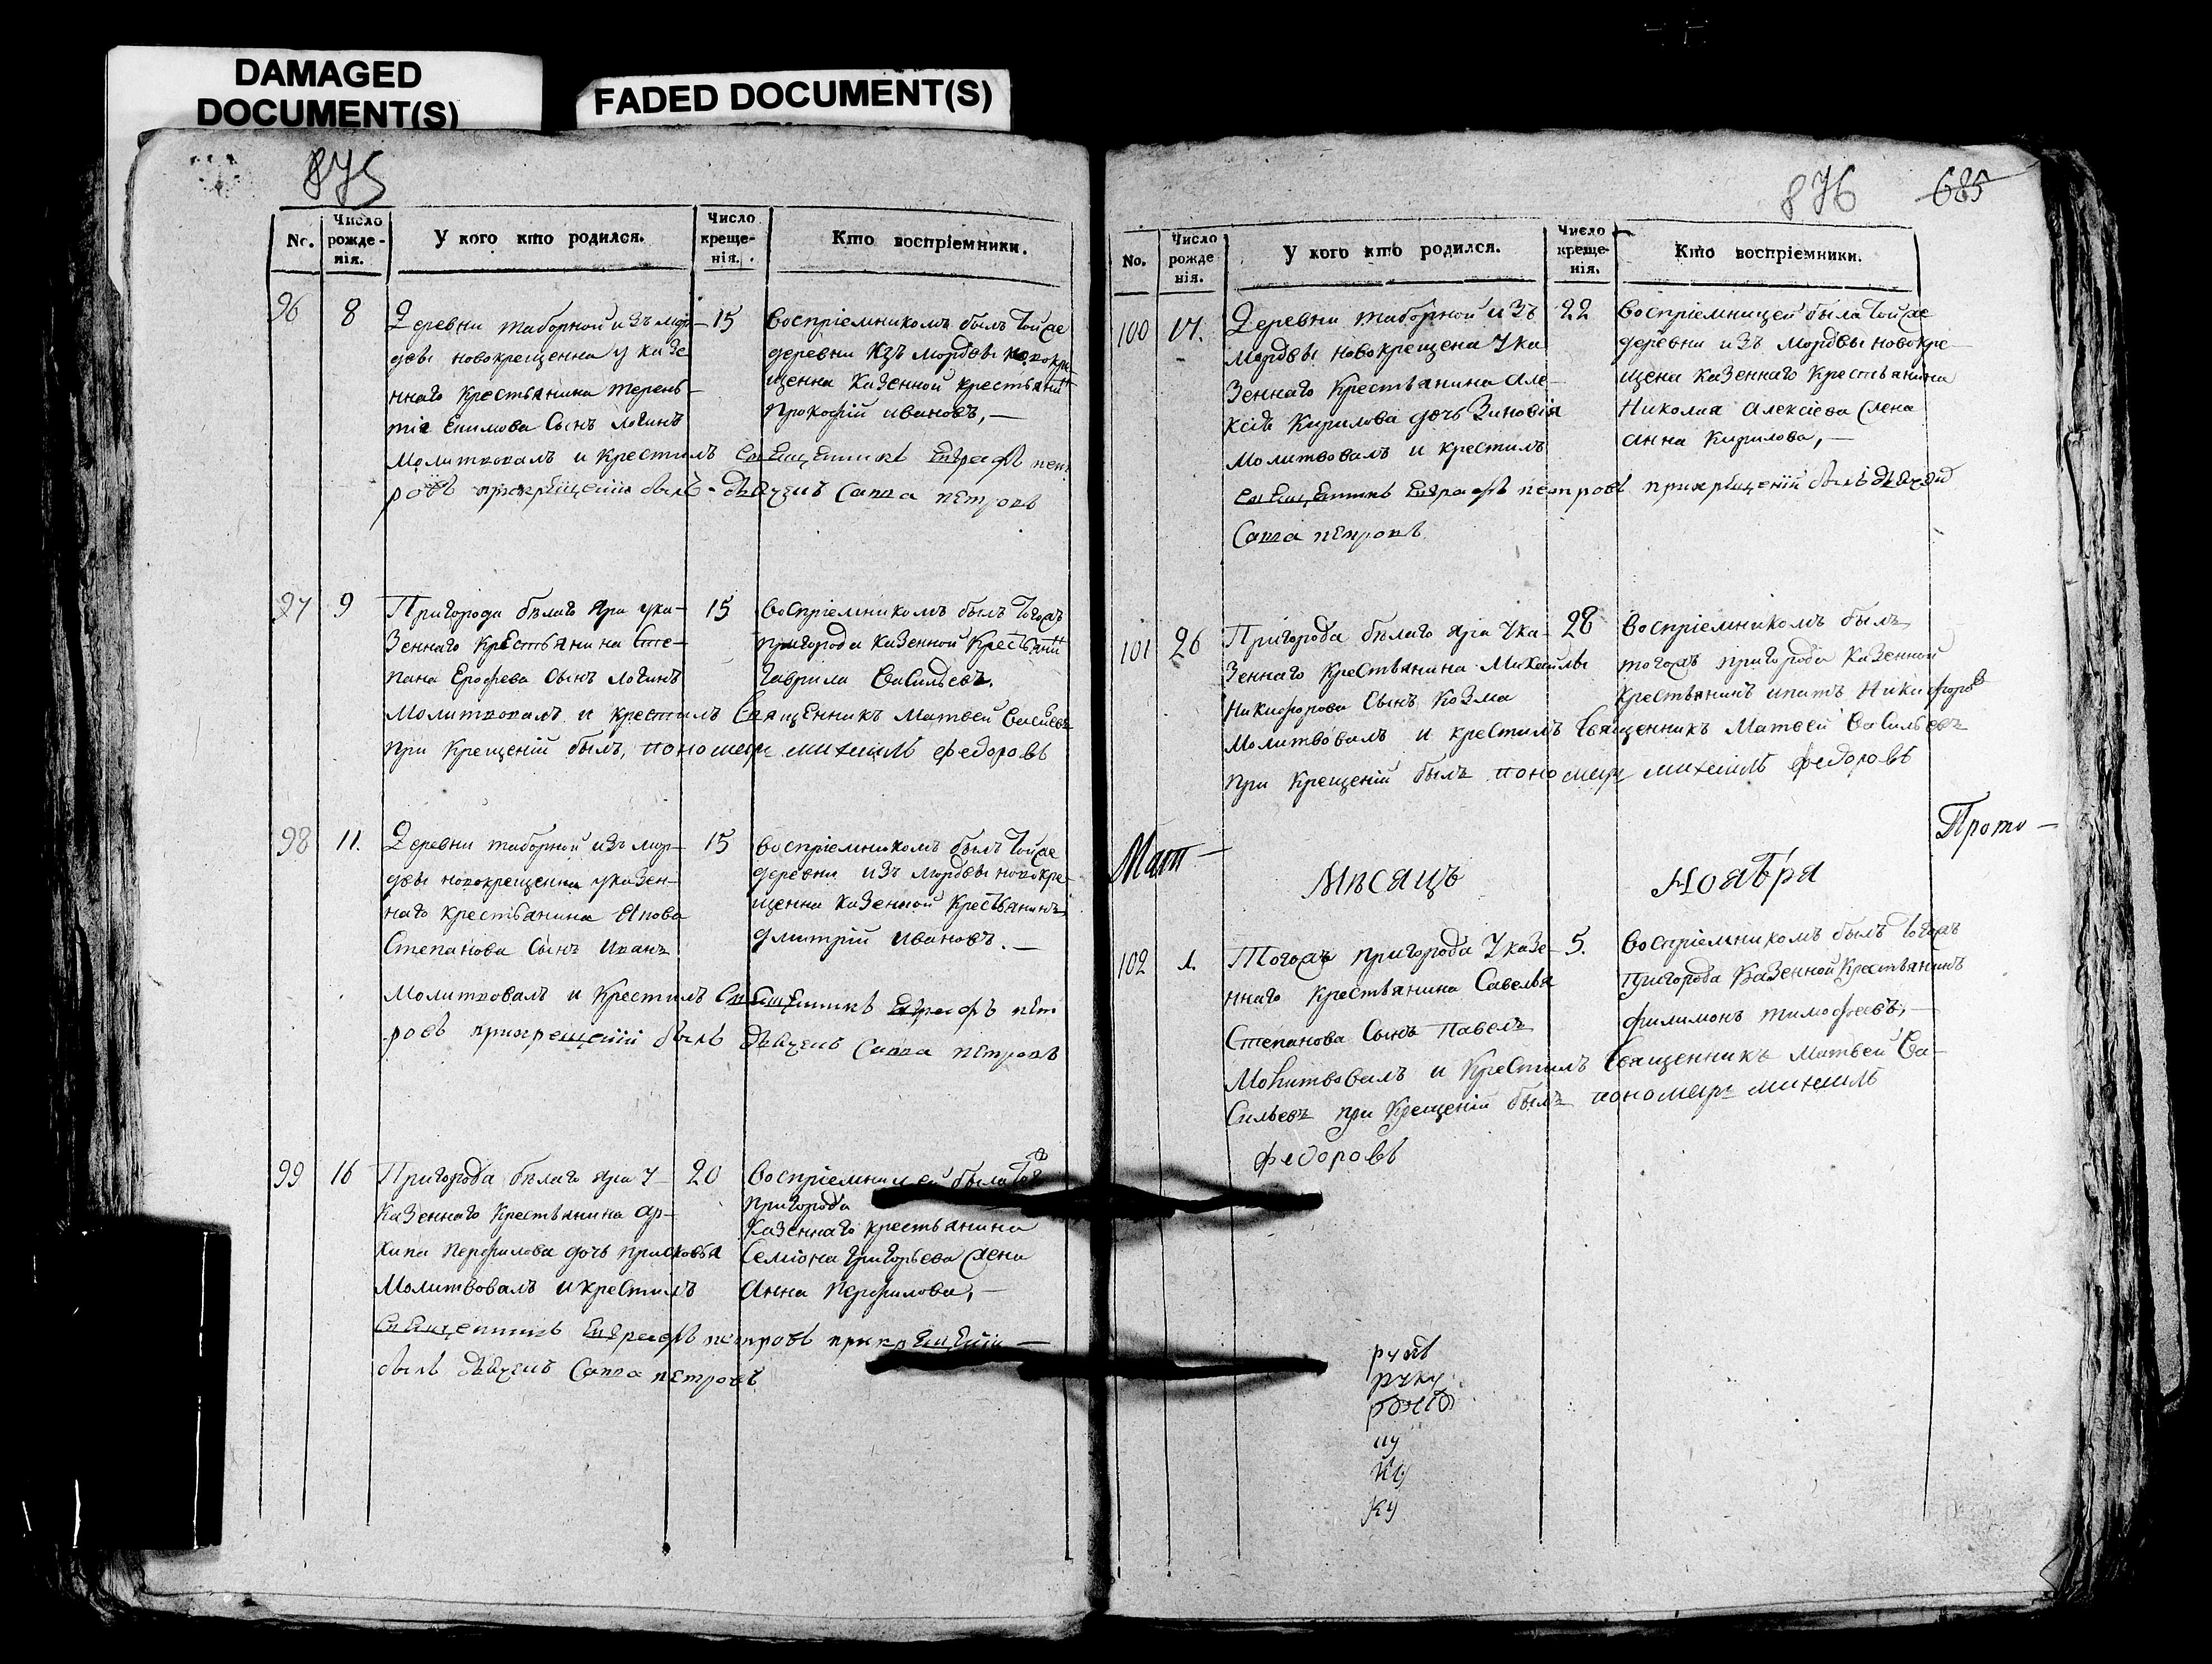 DAMAGED
DOCUMENT(S)
FADED DOCUMENT(S)
875
No.
Число
рожде-
нія.
У кого кто родился.
Число
креще-
нія.
Кто воспріемники.
96
8
Деревни таборной изъ мор-
двы новокрещенна у казе
ннаго крестьянина терень-
тіа Сынъ логинъ
молитвовалъ и крестилъ Священникъ Евграфъ пет
ровъ прикрещеніи былъ дьячекъ Савва петровъ
15
воспріемникомъ былъ тойже
деревни изъ мордвы новокре
щенна казенной крестьянинъ
прокофій ивановъ,—
97
9
Пригорода бѣлаго яра ука-
зеннаго крестьянина Сте-
пана Ерофева Сынъ логинъ
молитвовалъ и крестилъ Священникъ Матвей Васильевъ
при крещеніи былъ, пономарь михаилъ федоровъ
15
воспріемникомъ былъ тогожъ
пригорода казенной крестьянинъ
Гаврила Васильевъ.
98
11.
Деревни таборной изъ мор-
двы новокрещенна указен-
наго крестьянина
Степанова Сынъ иванъ
молитвовалъ и крестилъ Священникъ Евграфъ пет
ровъ прикрещеніи былъ дьячекъ Савва петровъ
15
воспріемникомъ былъ тойже
деревни изъ мордвы новокре-
щенна казенной крестьянинъ
дмитрій ивановъ.—
99
16
Пригорода бѣлаго яра у-
казеннаго крестьянина ар-
хипа перфилова дочь прасковья
молитвовалъ и крестилъ
Священникъ Евграфъ петровъ прикрещеніи—
былъ дьячекъ Савва петровъ
20
воспріемницей была тогожъ
пригорода
казеннаго крестьянина
Семіона григорьева жена
анна перфилова,—
876
685
No.
Число
рожде
нія.
У кого кто родился.
Число
креще-
нія.
Кто воспріемники.
100
Деревни таборной изъ
мордвы новокрещена ука
зеннаго крестьянина але-
ксѣя Кирилова дочь Зиновія
молитвовалъ и крестилъ
Священникъ Евграфъ петровъ прикрещеніи былъ дьячекъ
Савва петровъ
22
воспріемницей была тойже
деревни изъ мордвы новокре-
щена казеннаго крестьянина
Николая алексіева жена
анна Кирилова,—
101
26
Пригорода бѣлаго яра ука-
зеннаго крестьянина михайлы
Никифорова Сынъ Козма
молитвовалъ и крестилъ Священникъ Матвей Васильевъ
при крещеніи былъ пономарь михаилъ федоровъ
28
воспріемникомъ былъ
тогожъ пригорода казенной
крестьянинъ ипатъ Никифоровъ
Прото—
Мат—
Мѣсяцъ Ноября
102
1.
Тогожъ пригорода указе-
ннаго крестьянина Савелья
Степанова Сынъ павелъ
молитвовалъ и крестилъ Священникъ Матвей Ва-
сильевъ при крещеніи былъ пономарь михаилъ
федоровъ
5.
воспріемникомъ былъ тогожъ
пригорода казенной крестьянинъ
филимонъ тимофеевъ,—
руку
ку